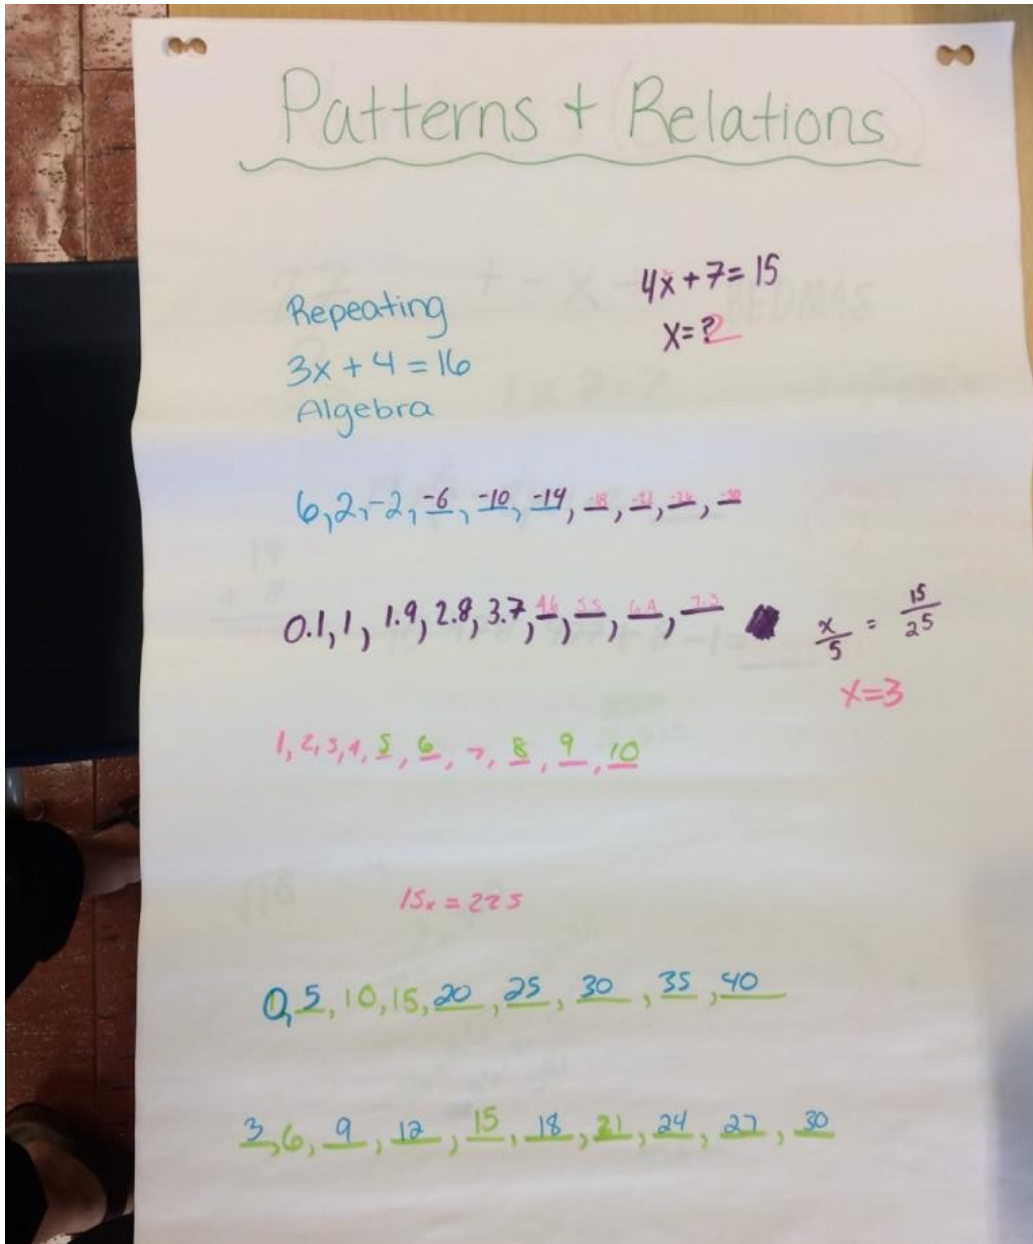 Patterns + Relations
4x + 7 = 15
x = ? 2
Repeating
3x + 4 = 16
Algebra
6, 2, -2, -6, -10, -14, -18, -22, -26, -30
0.1, 1, 1.9, 2.8, 3.7, 4.6, 5.5, 6.4, 7.3
x/5 = 15/25
x=3
1, 2, 3, 4, 5, 6, 7, 8, 9, 10
15x = 225
0, 5, 10, 15, 20, 25, 30, 35, 40
3, 6, 9, 12, 15, 18, 21, 24, 27, 30